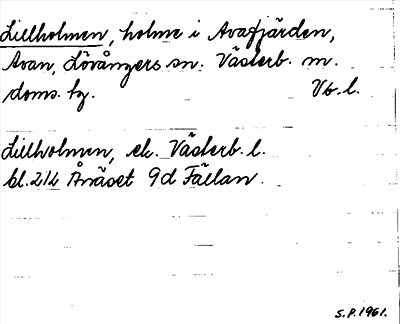 Lillholmen, holme i Avafjärden,
Avan, Lövångers sn. Västerb. m.
doms. fg. Vb. l.
Lillholmen, ek. Västerb. l.
bl. 212 Ånäset 9d Fällan.
S.P. 1961.